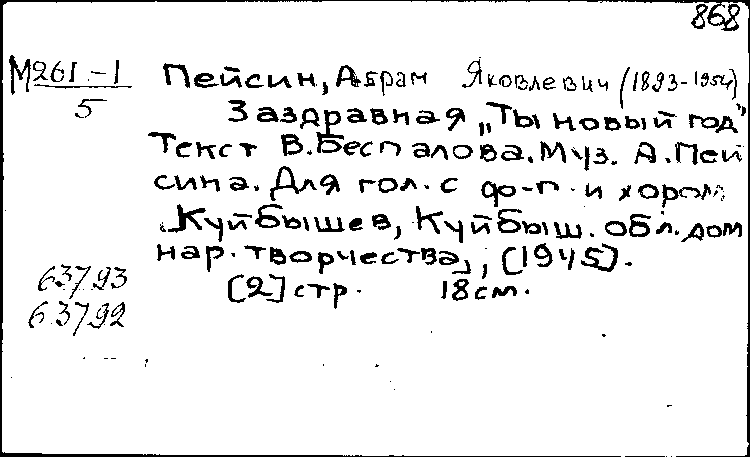 868
М261-1
5
Пейсин, Абрам Яковлевич (1893-1954)
Заздравная „Ты новый год"
Текст В.Беспалова. Муз. А.Пей
сина. Для гол. с ф-п. и хором
Куйбышев, Куйбыш. обл. дом
нар. творчества, [1945].
[2] стр. 18 см.
63793
63792